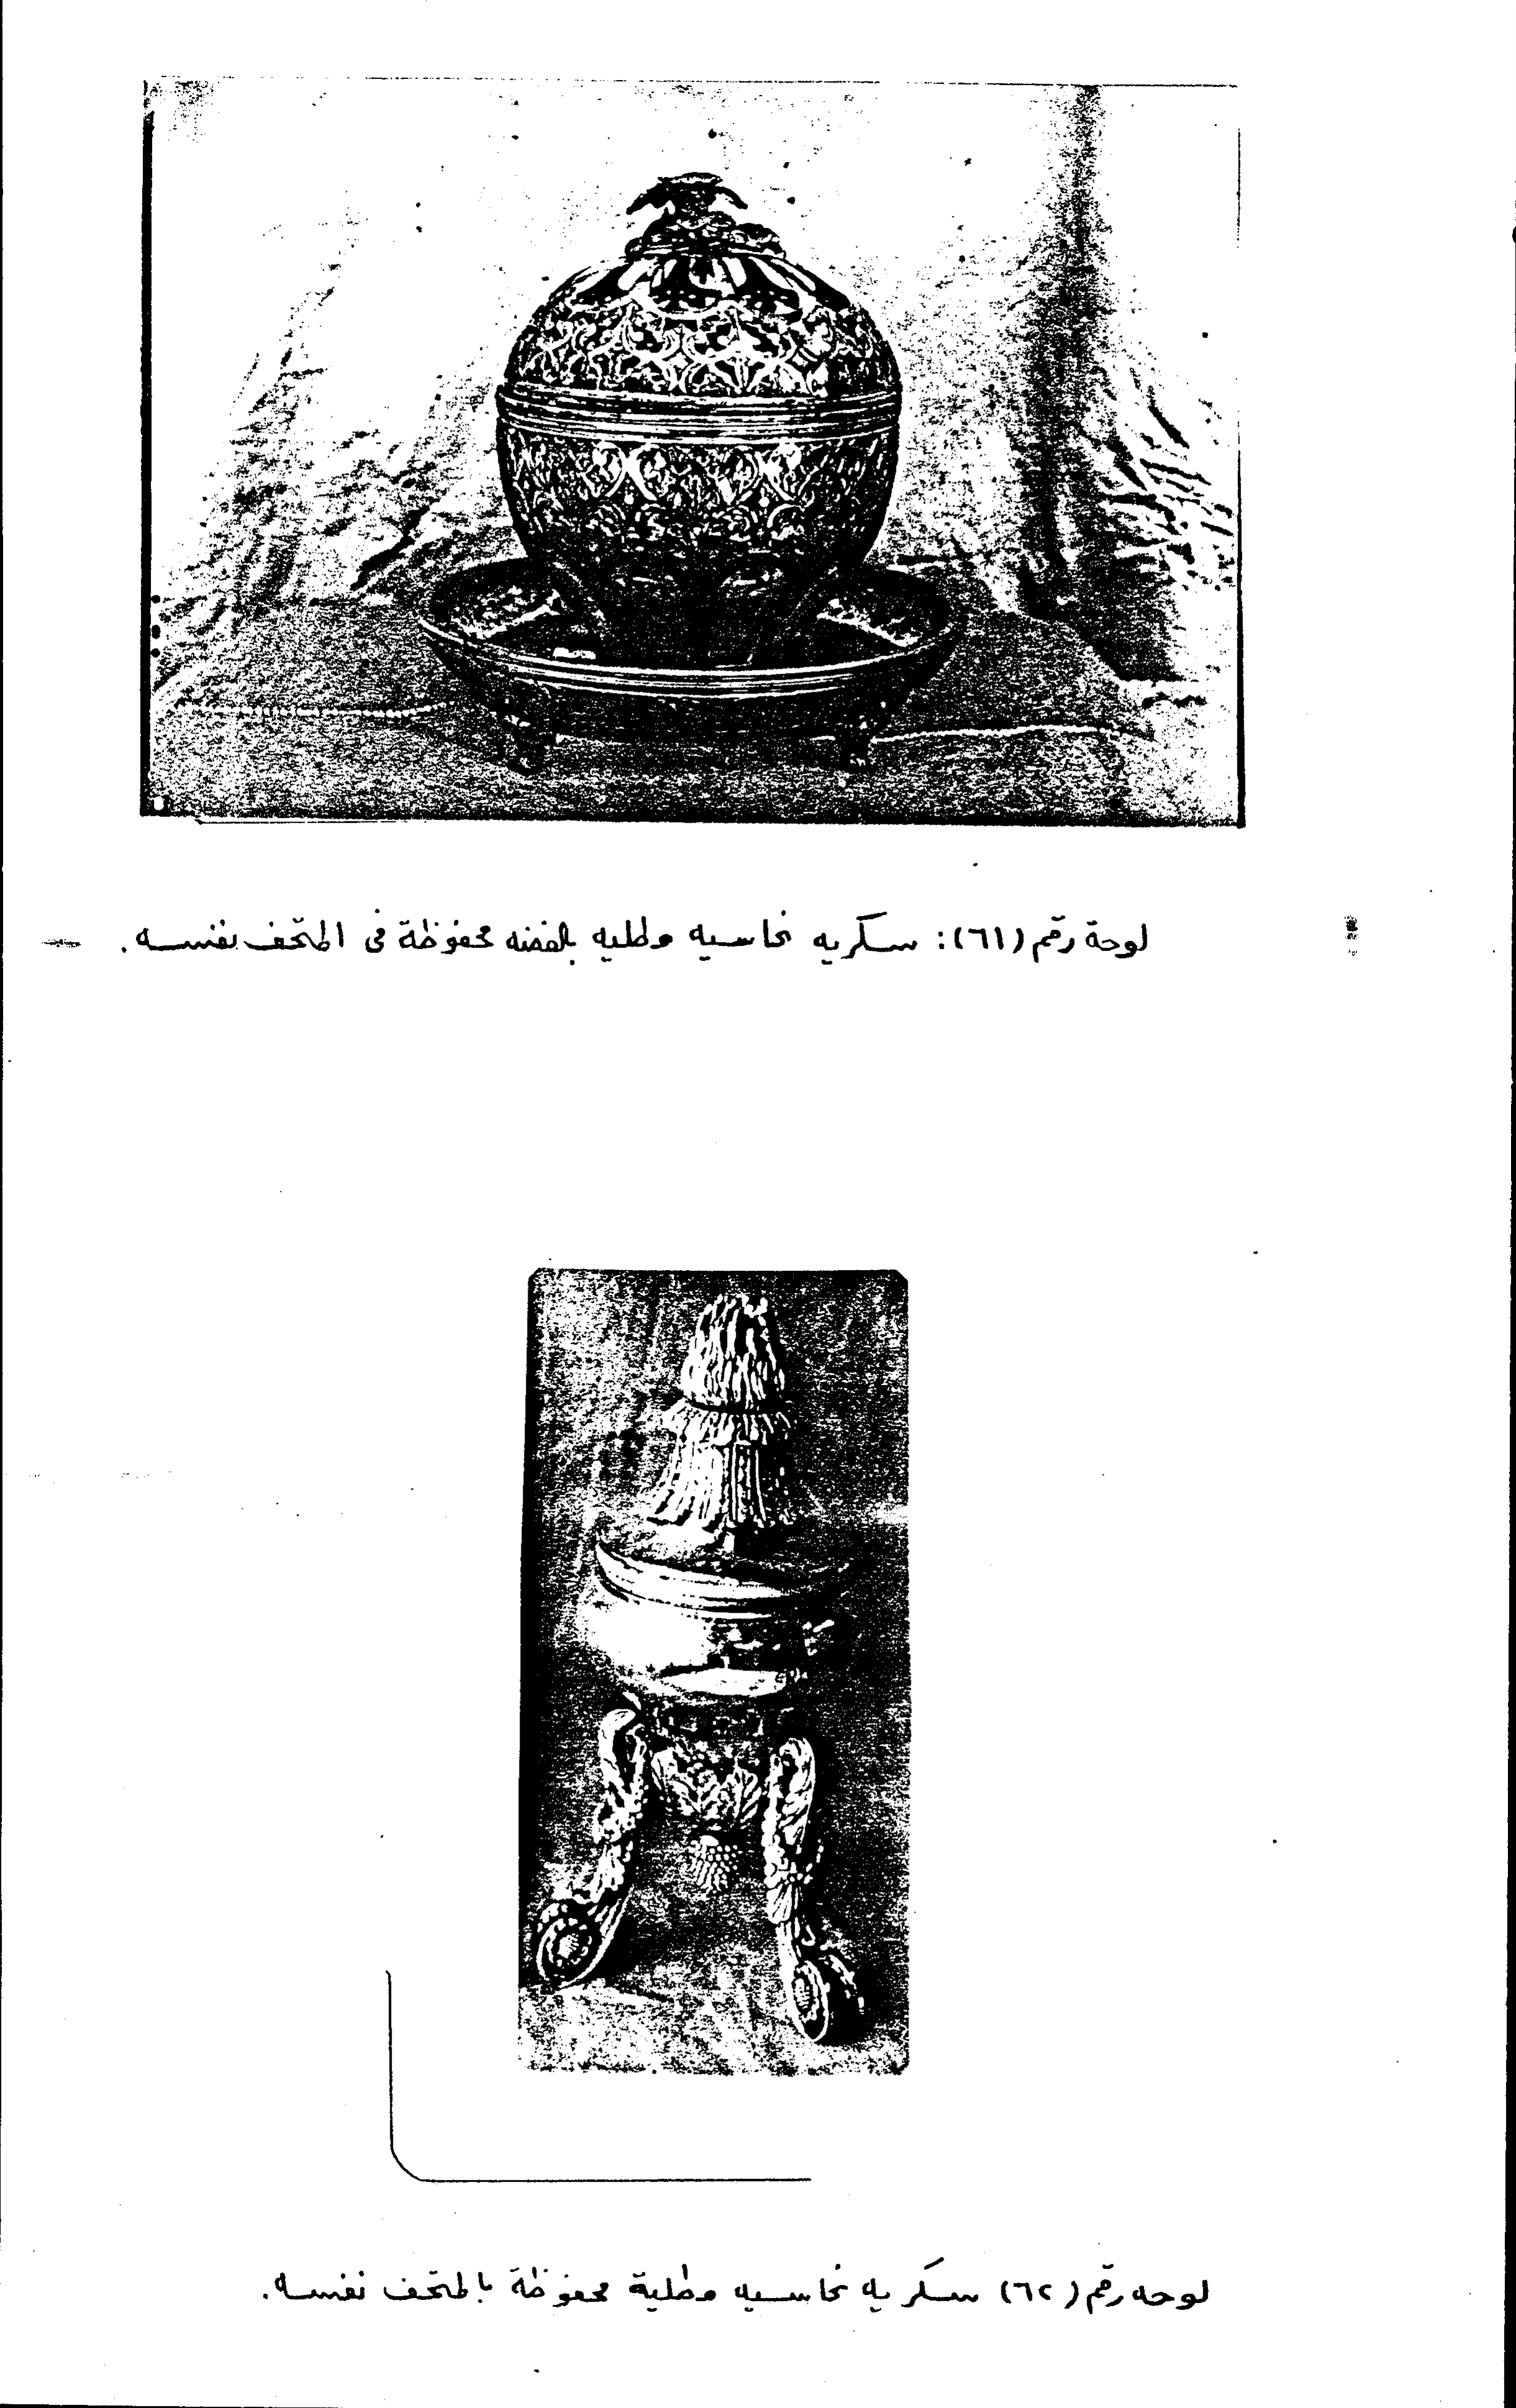 لوحة رقم (٦١): سكريه نحاسيه مطليه بالفضه محفوظة فى المتحف نفسه.
لوحه رقم (٦٢) سكريه نحاسيه مطلية محفوظة بالمتحف نفسه.